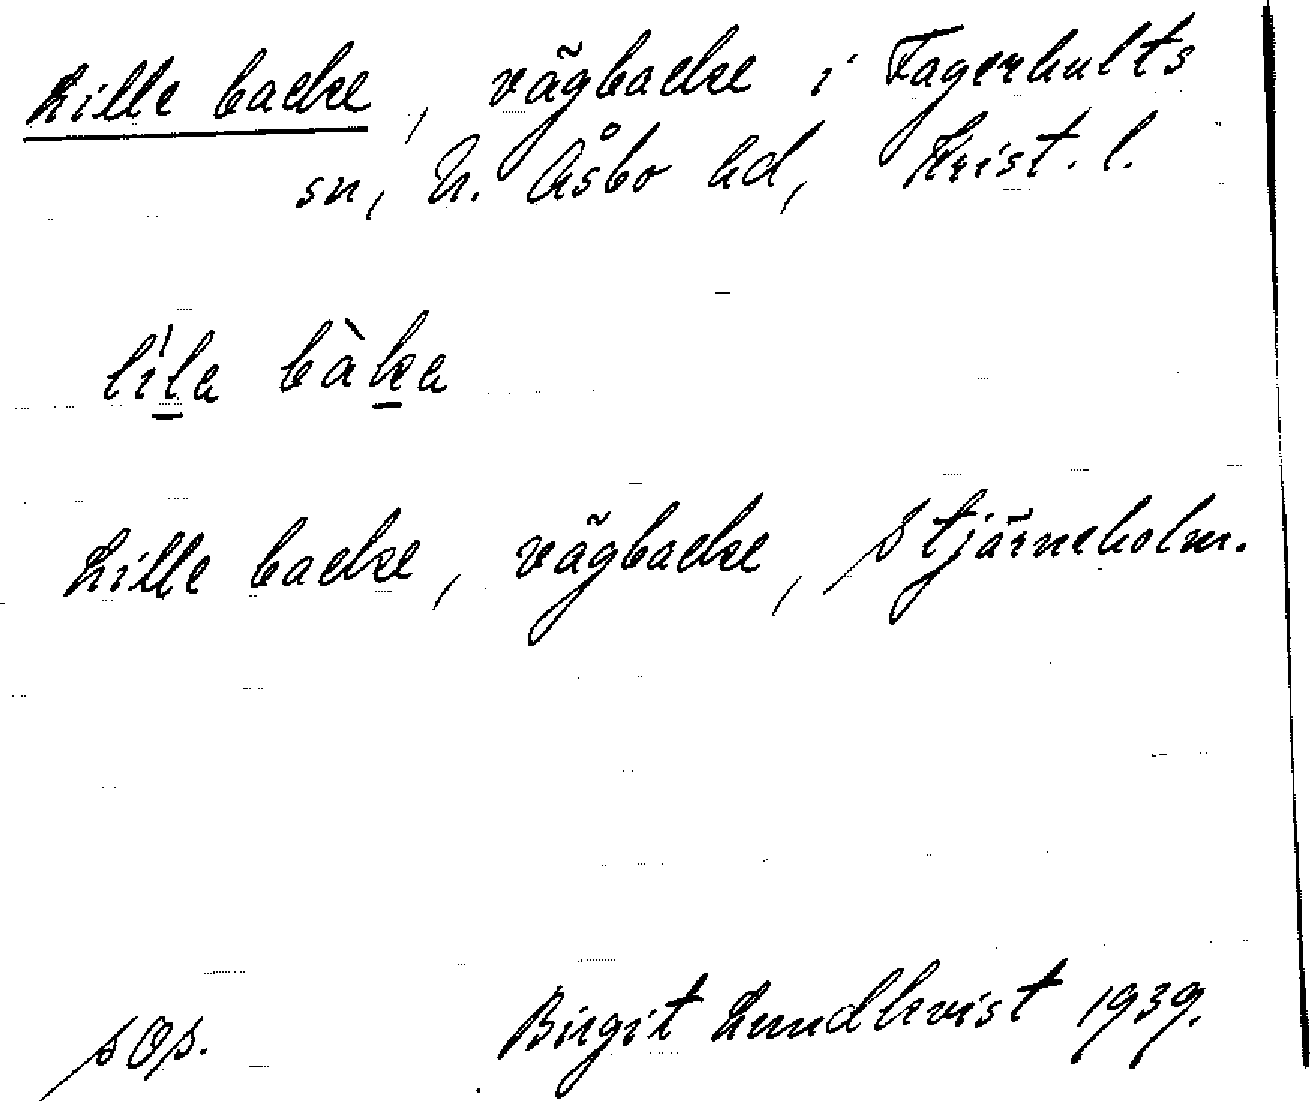 Lille backe, vägbacke i Fagerhults
sn, N. Åsbo hd, Krist. l.
líla bàka
Lille backe, vägbacke, Stjärneholm.
sOp. Birgit Lundkvist 1939.